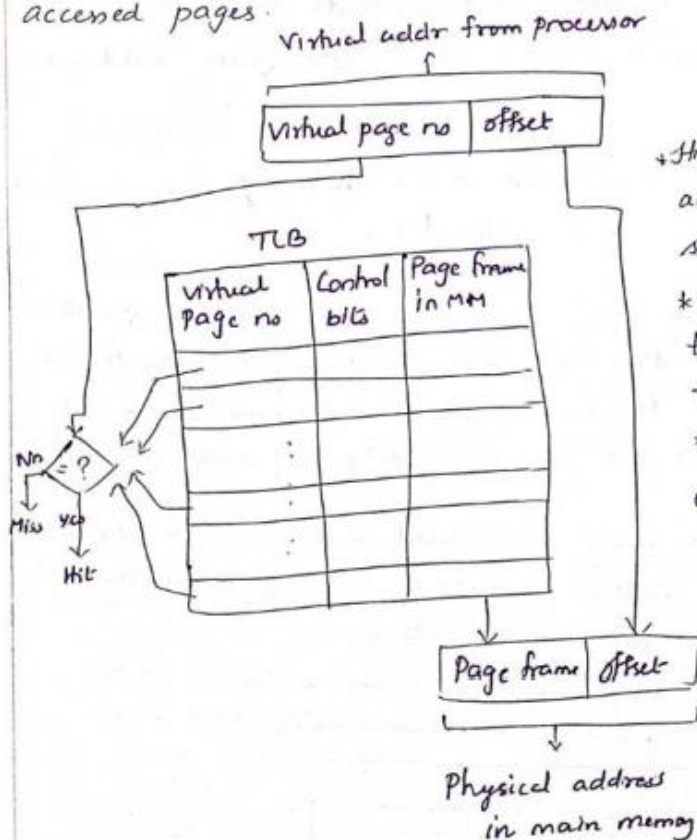 accessed pages.
Virtual addr from processor
Virtual page no offset
TLB
Virtual Page no
Control bits
Page frame in MM
No
= ?
Miss yes
Hit
Page frame offset
Physical address
in main memory
*
*